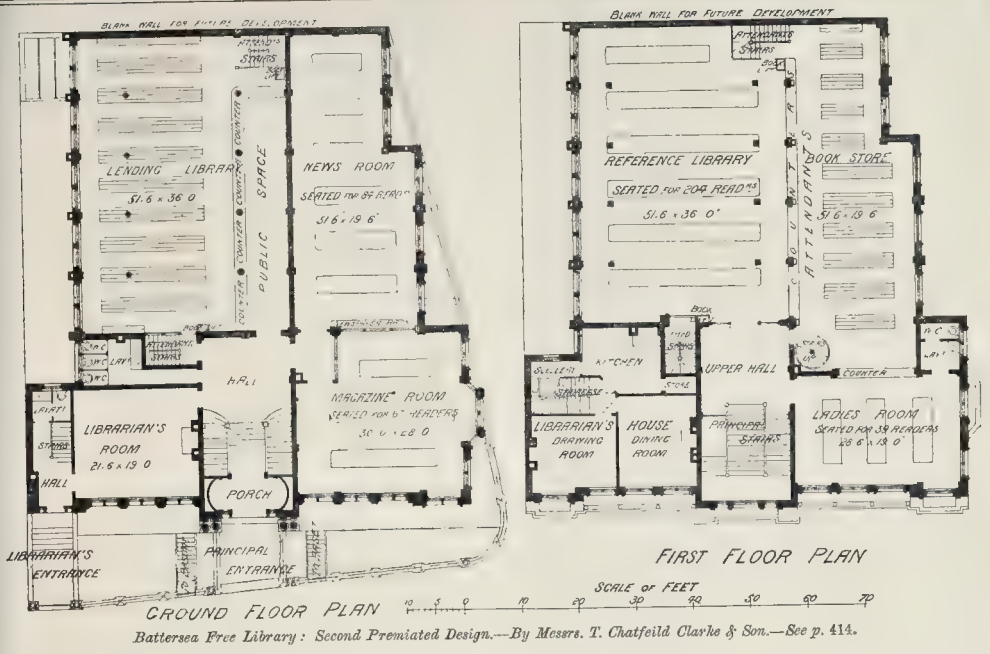 BLANK WALL FOR FUTURE DEVELOPMENT
STAIRS
LENDING LIBRARY
51.6 x 36 0
COUNTER COUNTER COUNTER COUNTER
PUBLIC SPACE
NEWS ROOM
SEATED FOR
51.6 x 19 6"
W.C
W.C
W.C
LAVY
STAIRS
HALL
MAGAZINE ROOM
SEATED FOR READERS
STAIRS
HALL
LIBRARIAN'S
ROOM
21.6 x 19 0
PORCH
LIBRARIAN'S
ENTRANCE
PRINCIPAL
ENTRANCE
GROUND FLOOR PLAN
BLANK WALL FOR FUTURE DEVELOPMENT
ATTENDANTS
STAIRS
BOOK
REFERENCE LIBRARY
SEATED FOR 204 READRS
51.6 x 36 0"
COUNTER
ATTENDANTS
BOOK STORE
51.6 x 19 6
BOOK
KITCHEN
STAIRS
STORE
SCULLERY
STAIRCASE
UPPER HALL
STAIRS
UP
COUNTER
W.C
LAVY
LIBRARIAN'S
DRAWING
ROOM
HOUSE
DINING
ROOM
PRINCIPAL
STAIRS
LADIES ROOM
SEATED FOR 39 READERS
28 6" x 19 0"
FIRST FLOOR PLAN
SCALE OF FEET
10 5 0 10 20 30 40 50 60 70
Battersea Free Library: Second Premiated Design.—By Messrs. T. Chatfeild Clarke & Son.—See p. 414.